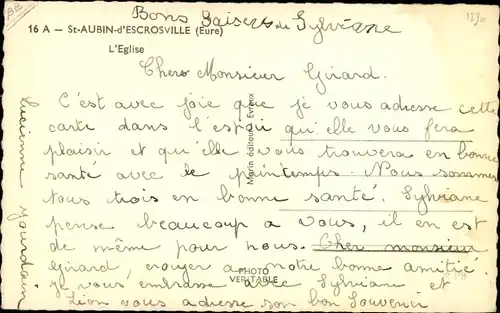 Bons Baisers de Sylviane
16 A — St-AUBIN-d'ESCROSVILLE (Eure)
L'Eglise
Chers Monsieur Girard.
C'est avec joie que je vous adresse cette
carte dans l'espoir qu'elle vous fera
plaisir et qu'elle vous trouvera en bonne
santé avec le printemps. Nous sommes
tous trois en bonne santé. Sylviane
pense beaucoup a vous, il en est
de même pour nous. Cher monsieur
Girard, croyer a notre bonne amitié.
je vous embrasse avec Sylviane et
Léon vous adresse son bon Souvenir
Lucienne Jourdain
Morin éditeur, Evreux
PHOTO
VERITABLE